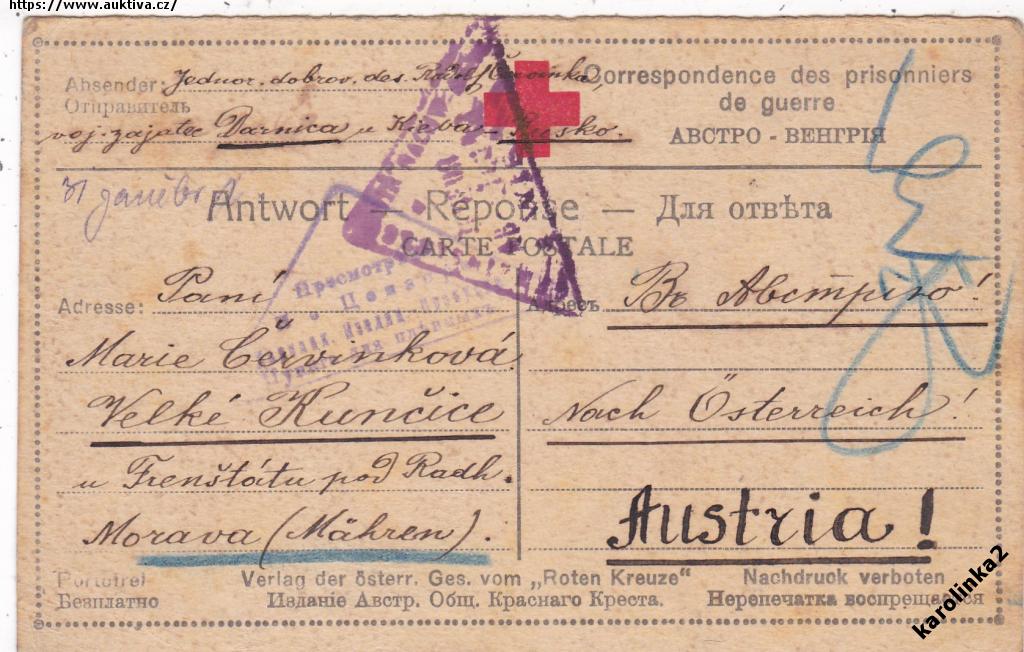 https://www.auktiva.cz/
Absender: Jednor. dobrov. des. Rudolf Červinka,
Отправитель
voj. zajatec Darnica u Kieva - Rusko.
Correspondence des prisonniers
de guerre
АВСТРО - ВЕНГРІЯ
Antwort — Réponse — Для отвѣта
CARTE POSTALE
Просмотр
Adresse: Paní
Marie Červinková
Velké Kunčice
u Frenštátu pod Radh.
Morava (Mähren).
Адресъ Въ Австрію!
Nach Österreich!
Austria!
Portofrei Verlag der österr. Ges. vom „Roten Kreuze" Nachdruck verboten
Безплатно Изданіе Австр. Общ. Краснаго Креста. Нерепечатка воспрещается
karolinka2